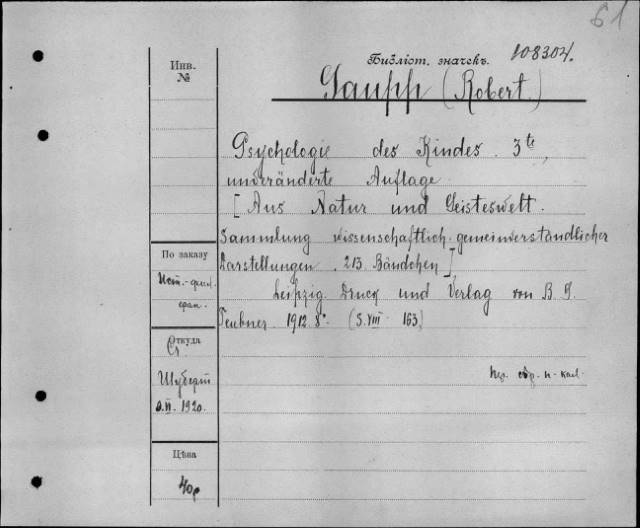 61
Библіот. значекъ. 108304.
Инв.
№
Gaupp (Robert)
Psychologie des Kindes. 3te,
unveränderte Auflage
[Aus Natur und Geisteswelt.
Sammlung wissenschaftlich-gemeinverständlicher
Darstellungen. 213. Bändchen],
Leipzig. Druck und Verlag von B. G.
Teubner. 1912. 8°. (S. VIII. 163)
По заказу
Ист.-фил.
Откуда
Шуберт
1920.
Цѣна
40р